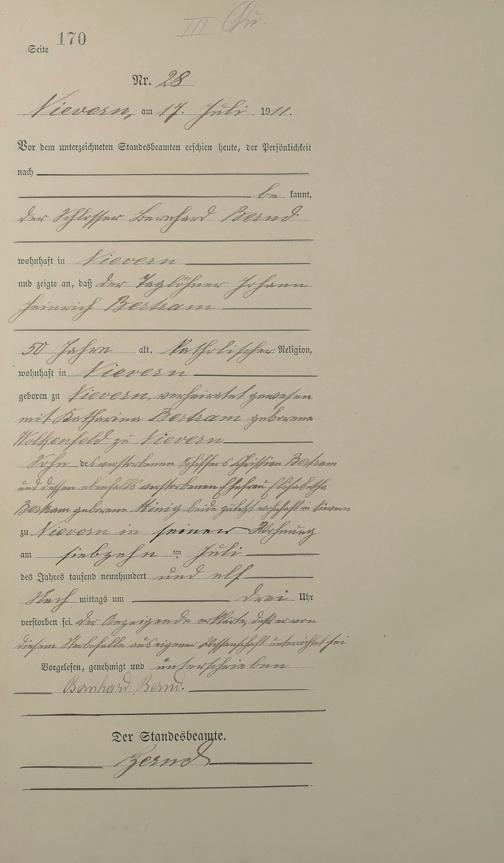 III
Seite 170
Nr. 28
Nievern, am 17. Juli 1911.
Vor dem unterzeichneten Standesbeamten erschien heute, der Persönlichkeit
nach
be kannt,
der Schlosser Bernhard Bernd
wohnhaft in Nievern
und zeigte an, daß der Taglöhner Johann
Heinrich Bertram
50 Jahre alt, katholischer Religion,
wohnhaft in Nievern
geboren zu Nievern, verheiratet gewesen
mit Katharina Bertram geborene
zu Nievern
Sohn des verstorbenen Schiffers Christian Bertram
und dessen ebenfalls verstorbenen Ehefrau Elisabetha
Bertram geborene König beide zuletzt wohnhaft in Nievern
zu Nievern in seiner Wohnung
am siebzehn ten Juli
des Jahres tausend neunhundert und elf
Nach mittags um drei Uhr
verstorben sei. Der Anzeigende erklärte, daß er von
diesem Sterbefalle aus eigener Wissenschaft unterrichtet sei
Vorgelesen, genehmigt und unterschrieben
Bernhard Bernd.
Der Standesbeamte.
Bernd